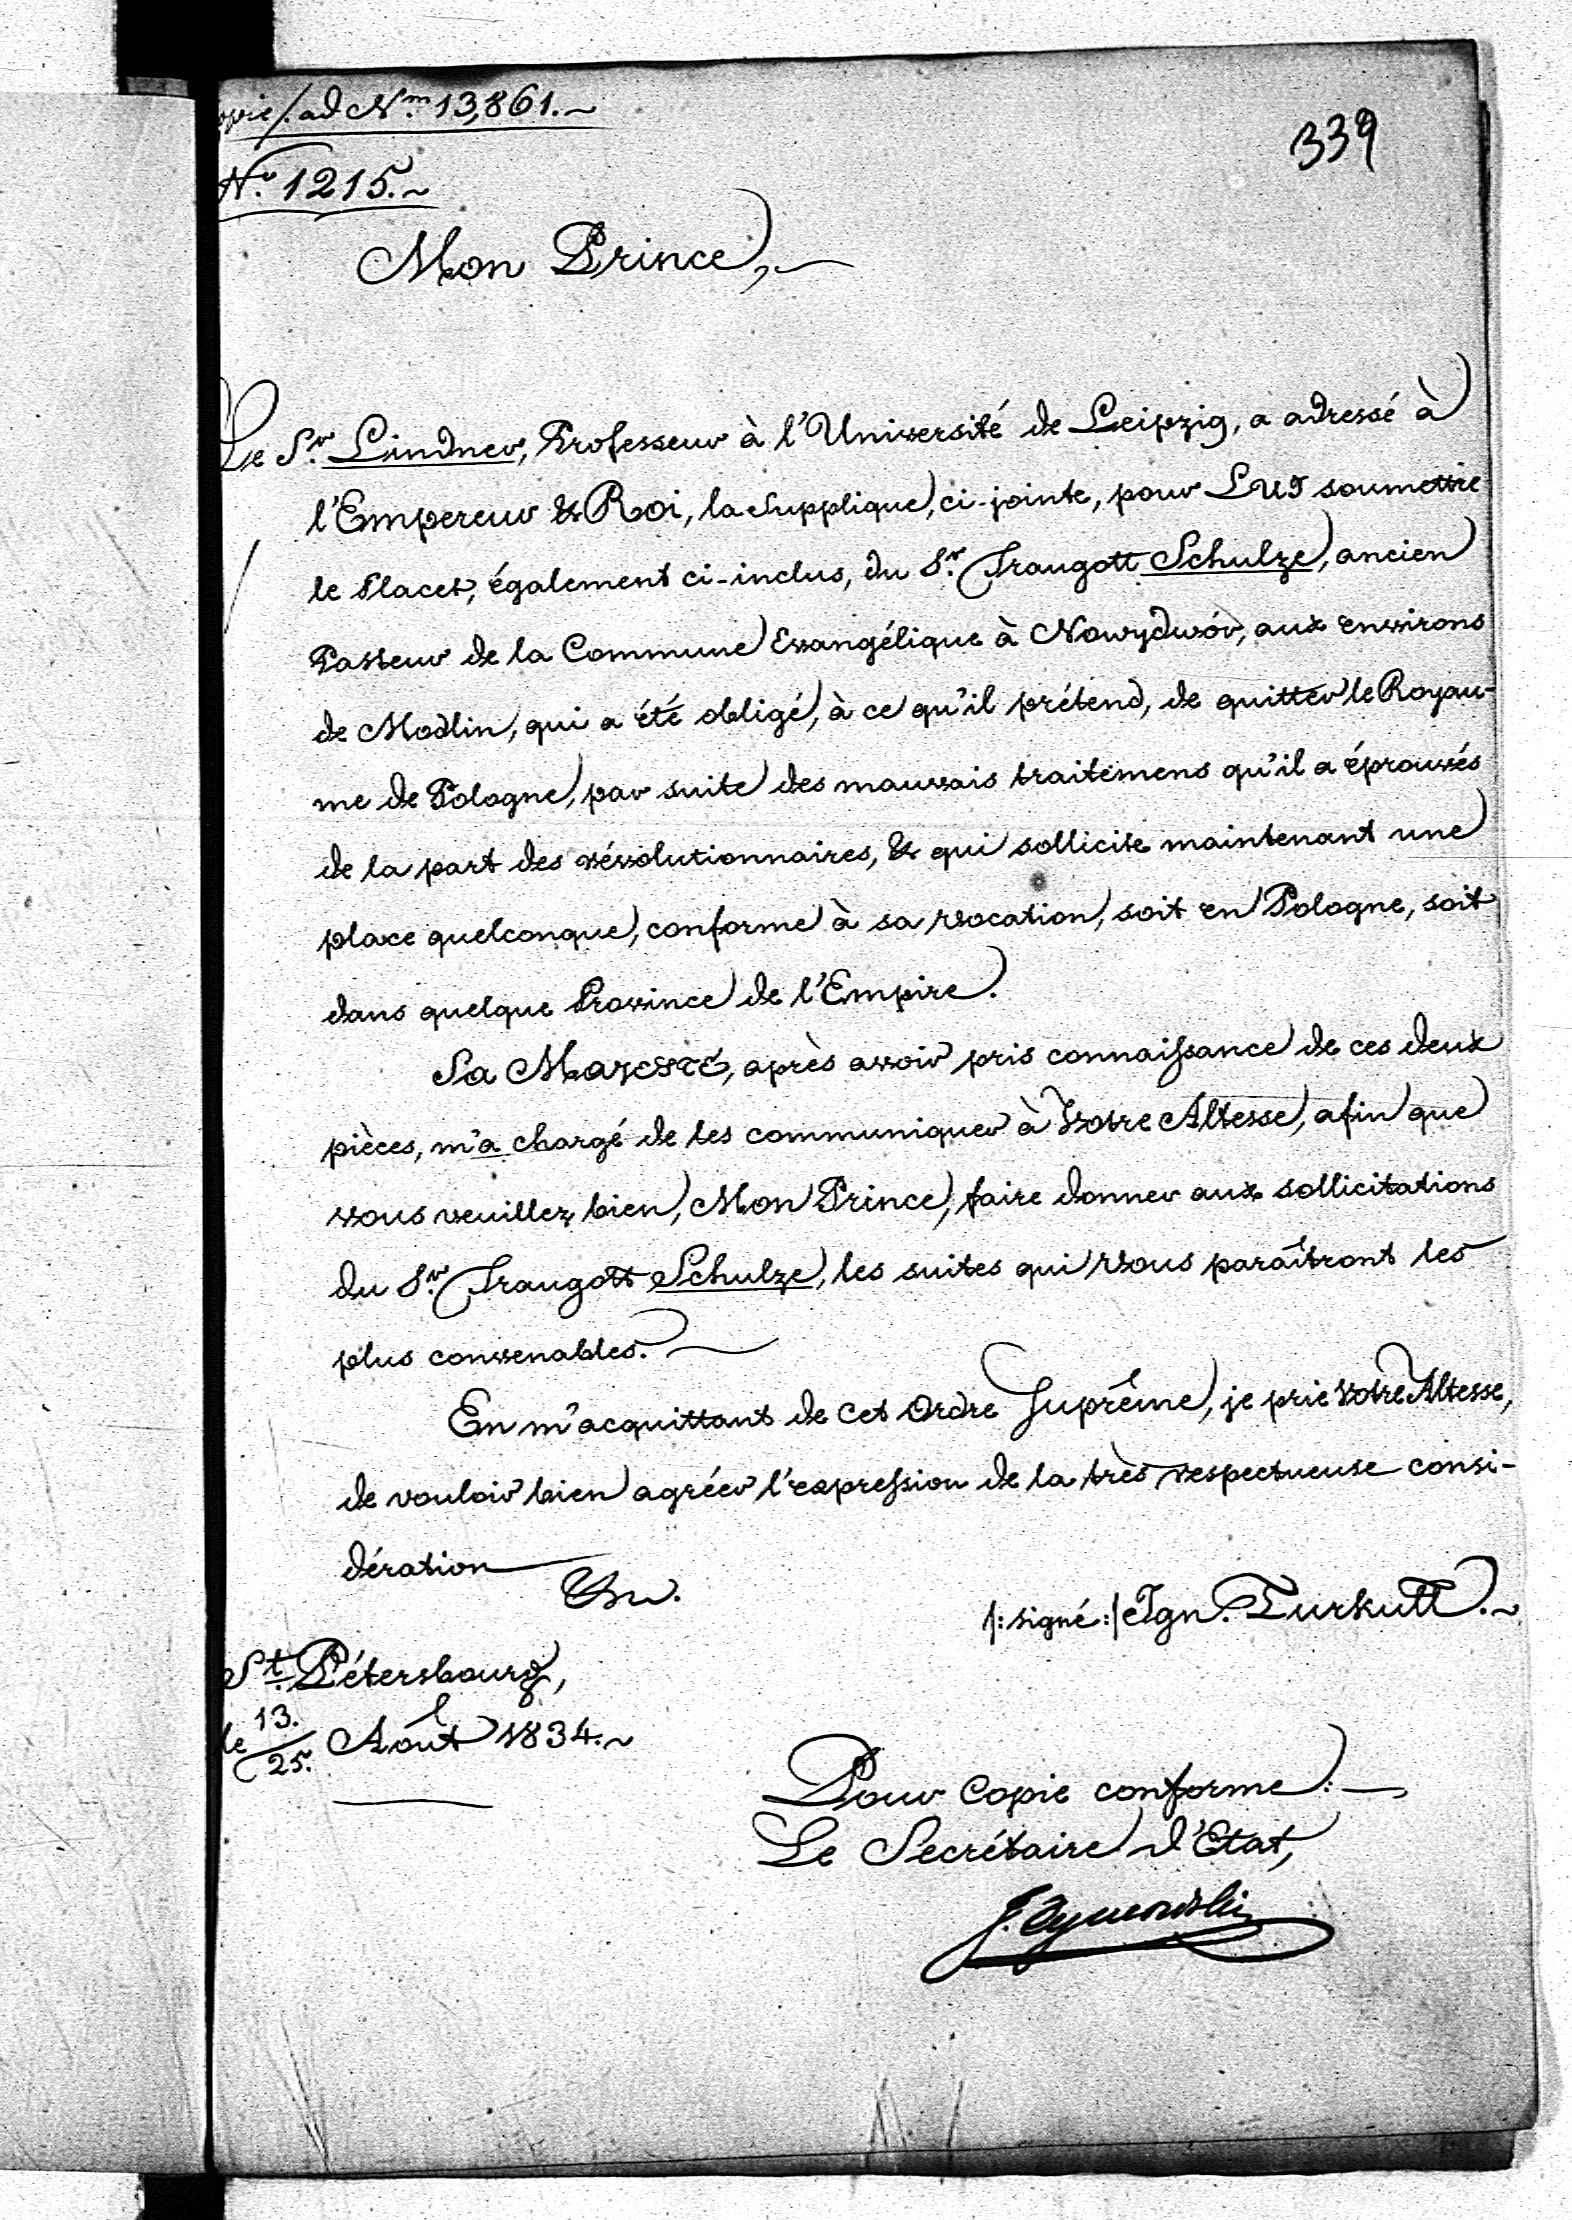 opie/. ad Nm. 13,861.~
339
No. 1215.~
Mon Prince,
Le Sr. Lindner, Professeur à l'Université de Leipzig, a adressé à
l'Empereur & Roi, la Supplique, ci-jointe, pour LUI soumettre
le Placet, également ci-inclus, du Sr. Traugott Schulze, ancien
Pasteur de la Commune Evangélique à Nowydwór, aux environs
de Modlin, qui a été obligé, à ce qu'il prétend, de quitter le Royau-
me de Pologne, par suite des mauvais traitemens qu'il a éprouvés
de la part des révolutionnaires, & qui sollicite maintenant une
place quelconque, conforme à sa vocation, soit en Pologne, soit
dans quelque Province de l'Empire.
Sa MAJESTÉ, après avoir pris connaissance de ces deux
pièces, m'a chargé de les communiquer à Votre Altesse, afin que
vous veuillez bien, Mon Prince, faire donner aux sollicitations
du Sr. Traugott Schulze, les suites qui Vous paraîtront les
plus convenables.
En m'acquittant de cet Ordre Suprême, je prie Votre Altesse,
de vouloir bien agréer l'expression de la très respectueuse consi-
dération
/:signé:/ Ign. Turkułł.~
St. Pétersbourg,
le 13./25. Août 1834.~
Pour copie conforme:
Le Secrétaire d'Etat,
J. Tymowski